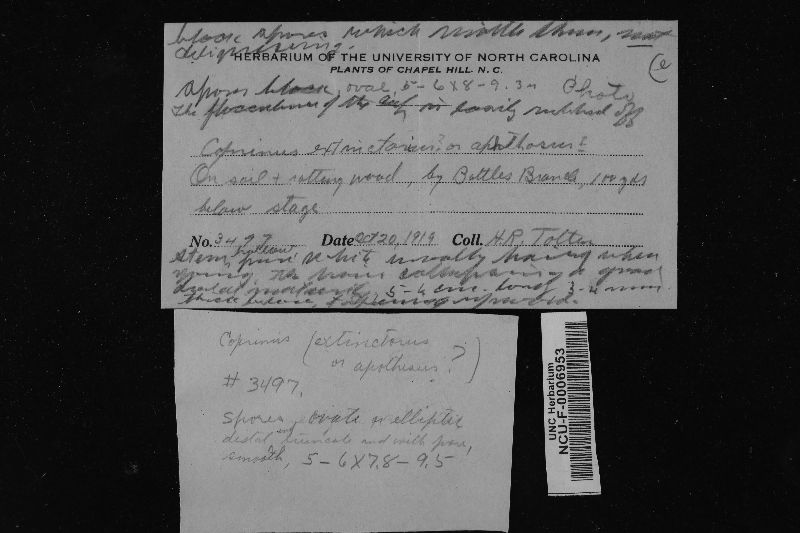 black spores which
deliquescing.
HERBARIUM OF THE UNIVERSITY OF NORTH CAROLINA
PLANTS OF CHAPEL HILL, N. C.
Spores black, oval, 5-6 x 8-9.3 Photo
The of the is easily rubbed off
Coprinus extinctorius? or
On soil + rotting wood, by Battles Branch, 100 yds
below stage
No. 3497 Date Oct 20, 1919 Coll. H.R. Totten
Stem hollow, pure white usually having when
young
5-6 cm. long 3-4 mm.
thick below, tapering upward.
Coprinus (extinctorus
or apotheosus?)
# 3497.
Spores ovate or elliptic
distal end truncate and with pore,
smooth, 5-6 X 7.8-9.5
UNC Herbarium
NCU-F-0006953